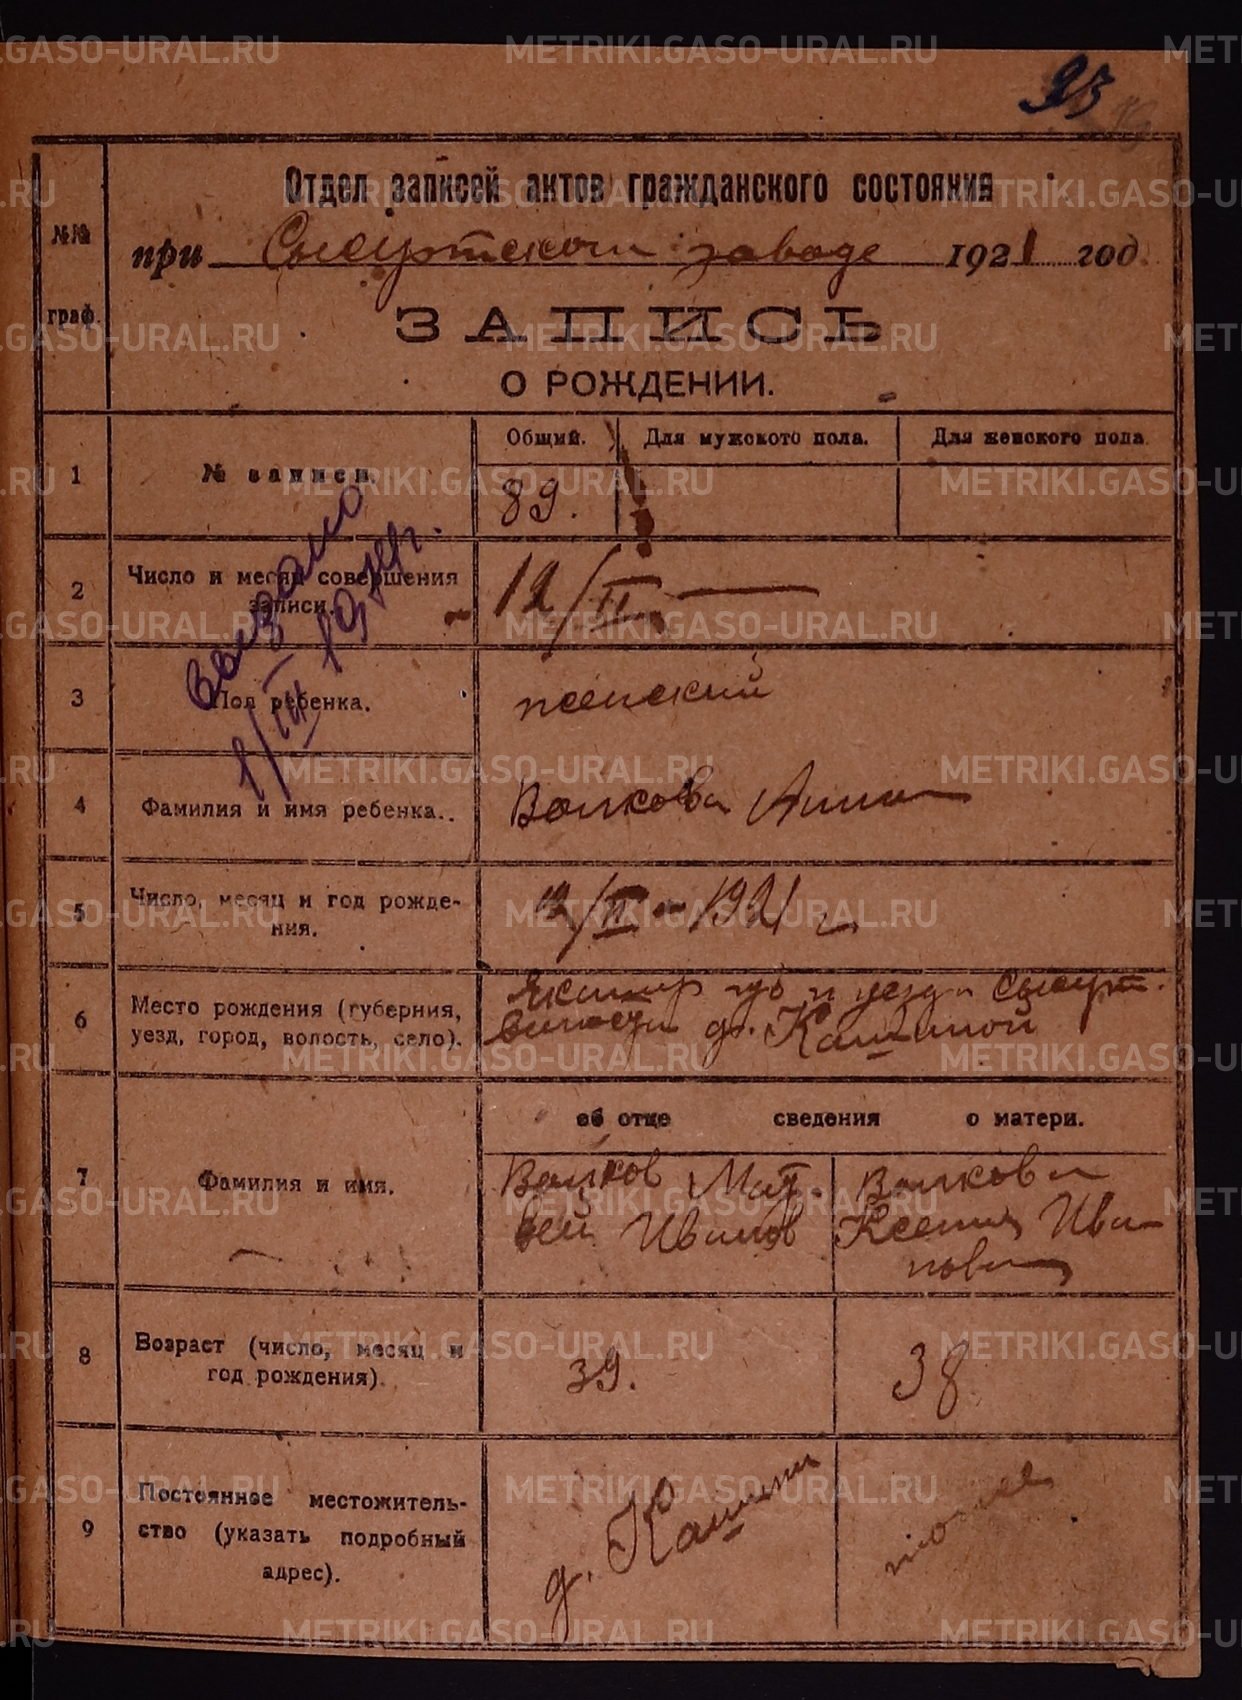 93
Отдел записей актов гражданского состояния
№№ граф.
при Сысертском заводе 1921 год
ЗАПИСЬ
О РОЖДЕНИИ.
Общий. Для мужского пола. Для женского пола.
1 № записи. 89.
2 Число и месяц совершения записи. 12/II
выдано
1/III 19
3 Пол ребенка. женский
4 Фамилия и имя ребенка.. Волкова Анна
5 Число, месяц и год рожде-
ния. 12/II - 1921 г.
6 Место рождения (губерния,
уезд, город, волость, село).
Екатер губ и уезда Сысерт.
волости д. Кашиной
об отце сведения о матери.
7 Фамилия и имя.
Волков Мат-
вей Иванов
Волкова
Ксения Ива-
нова
8 Возраст (число, месяц и
год рождения).
39. 38
9 Постоянное местожитель-
ство (указать подробный
адрес).
д. Кашина
тоже
METRIKI.GASO-URAL.RU